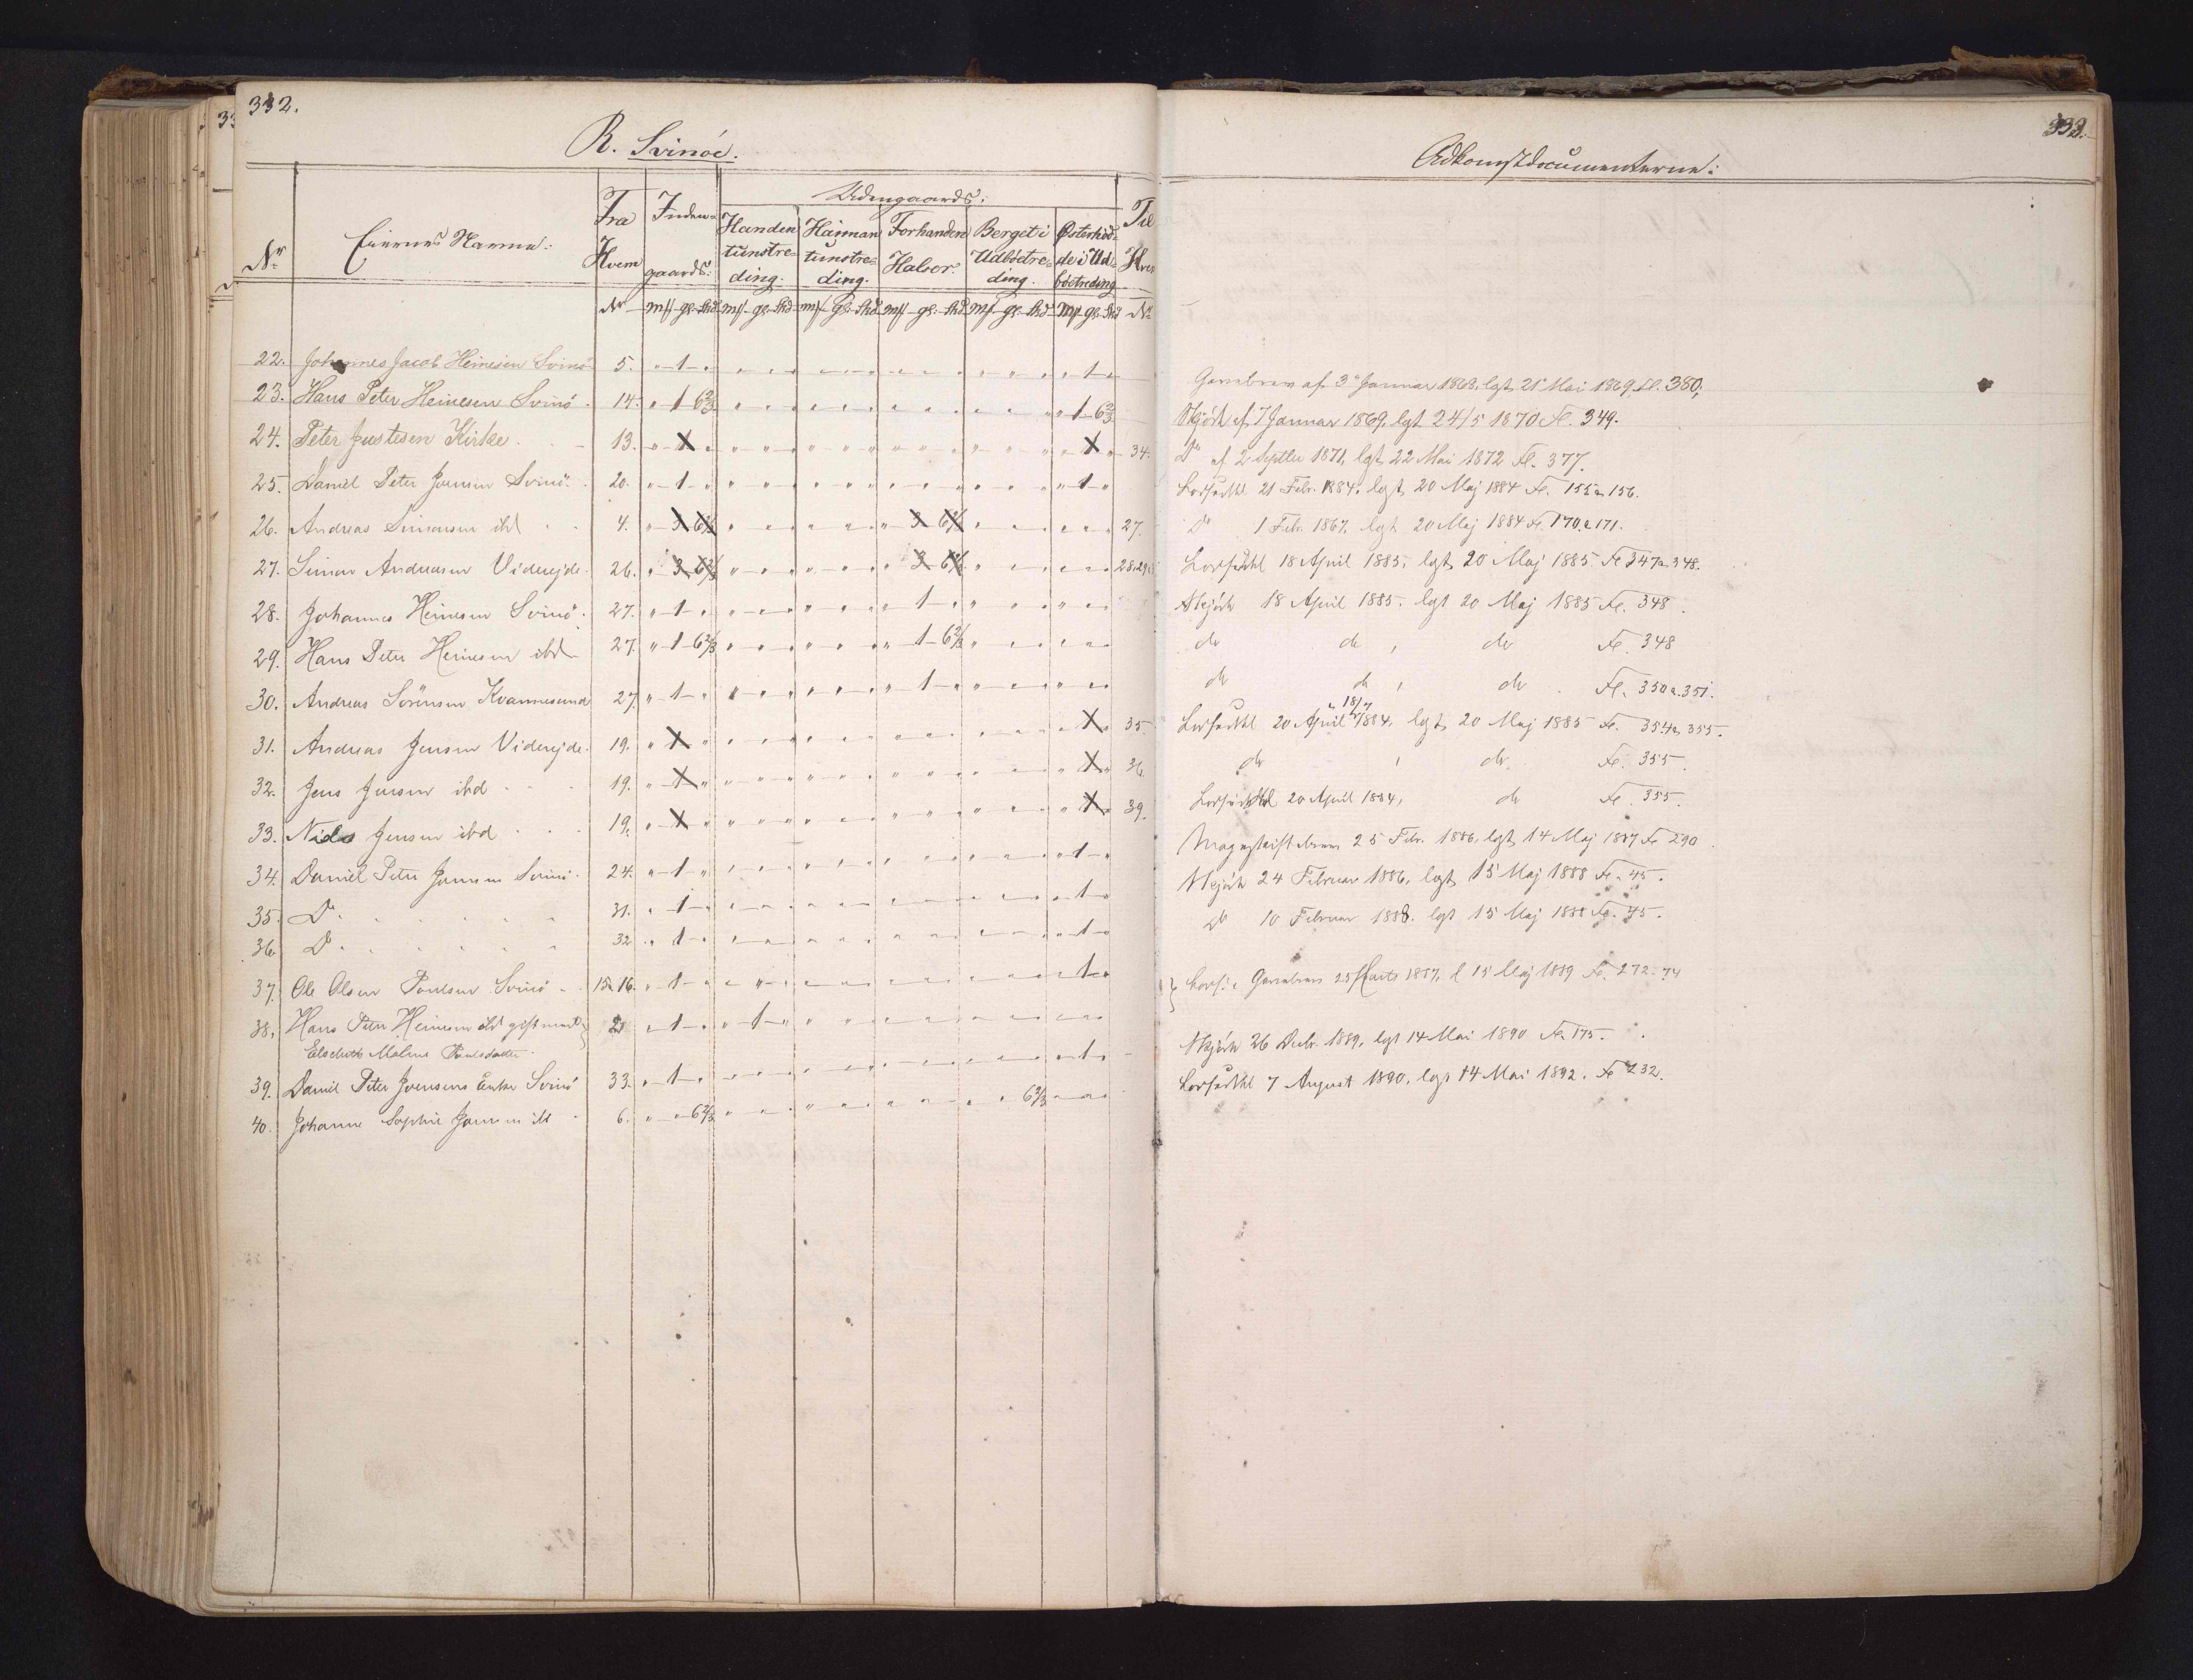 332.
R. Svinöe.
Nr
Eiernes Navne:
Fra Hvem
Inden-gaards:
Udengaards:
Handen tunstre-ding.
Hannan tunstre-ding.
Forhanden Halsor.
Berget i Udbøtre-ding.
Østerhød-de i Ud-bøtreding
Til
Nr mk gr. Skd mk gr. Skd mk gr. Skd mk gr. Skd mk gr. Skd mk gr. Skd Nr
22. Johannes Jacob Heinesen Svinö 5. " 1 " " 1 "
23. Hans Peter Heinesen Svinö. 14. " 1 6 2/3 " 1 6 2/3
24. Peter Justesen Kirke. 13. " 1 " " 1 " 34.
25. Daniel Peter Joensen Svinö. 20. " 1 " " 1 "
26. Andreas Simonsen ibd 4. " 3 6 2/3 " 3 6 2/3 27.
27. Simon Andreasen Viderejde. 26. " 3 6 2/3 " 3 6 2/3 28, 29
28. Johannes Heinesen Svinö. 27. " 1 " " 1 "
29. Hans Peter Heinesen ibd 27. " 1 6 2/3 " 1 6 2/3
30. Andreas Sörensen Kvannesund 27. " 1 " " 1 "
31. Andreas Jensen Viderejde. 19. " 1 " " 1 " 35.
32. Jens Jensen ibd 19. " 1 " " 1 " 36.
33. Niels Jensen ibd 19. " 1 " " 1 " 39.
34. Daniel Peter Joensen Svinö. 24. " 1 " " 1 "
35. Do 31. " 1 " " 1 "
36. Do 32 " 1 " " 1 "
37. Ole Olsen Poulsen Svinö 15 a 16. " 1 " " 1 "
38. Hans Peter Heinesen ibd gift med } 21 " 1 " " 1 "
Elsebeth Malene Poulsdatter.
39. Daniel Peter Joensens Enke Svinö 33. " 1 " " 1 "
40. Johanne Sophie Joensen ibd 6. " " 6 2/3 " 6 2/3
333.
Adkomstdocumenterne:
Gavebrev af 3 Januar 1868, lgt 21 Mai 1869, Fl. 380,
Skjöde af 7 Januar 1869, lgt 24/5 1870 Fl. 349.
Do af 2 Septbr 1871, lgt 22 Mai 1872 Fl. 377.
21 Febr. 1884. lgt 20 Maj 1884 Fl. 155 a 156.
Do 1 Febr. 1867. lgt 20 Maj 1884 Fl. 170 a 171.
18 April 1885. lgt 20 Maj 1885 Fl 347 a 348.
Skjöde 18 April 1885. lgt 20 Maj 1885 Fl. 348.
do do, do Fl. 348
do do, do Fl. 350 a 351.
20 April 18/7 1884, lgt 20 Maj 1885 Fl. 354 a 355.
do, do Fl. 355.
20 April 1884, do Fl. 355.
Mageskiftebrev 25 Febr. 1886, lgt 14 Maj 1887 Fl 290.
Skjöde 24 Februar 1886, lgt 15 Maj 1888 Fl. 45.
Do 10 Februar 1888. lgt 15 Maj 1888 Fl. 45.
} Gavebrev 25 Marts 1887, l 15 Maj 1889 Fl. 272-74
Skjöde 26 Decbr. 1889, lgt 14 Mai 1890 Fl. 175.
7 August 1890, lgt 14 Mai 1892. Fl 232.